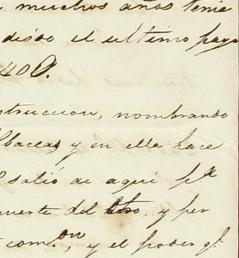 muchos años tenie
desde el ultimo pago
400.
struccion, nombrando
lbaceas y en ella hace
salió de aqui pa
uerte del otro, y per
com.on, y el poder q.